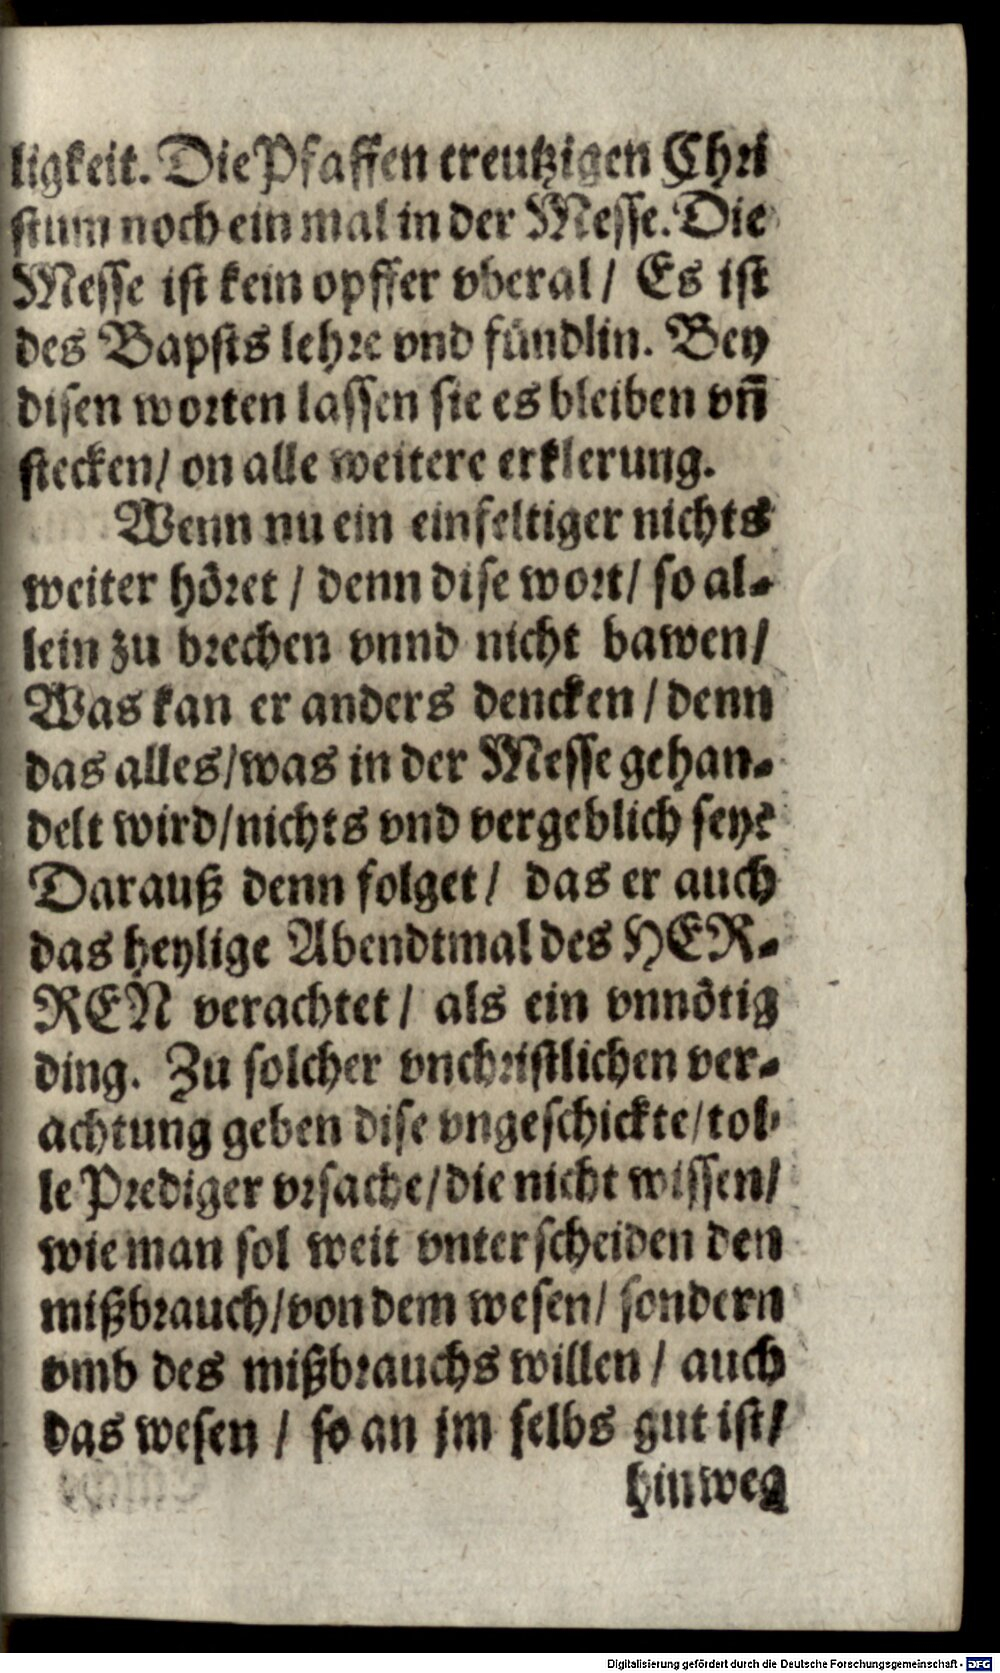 ligkeit. Die Pfaffen creutzigen Chri
stum noch ein mal in der Messe. Die
Messe ist kein opffer vberal / Es ist
des Bapsts lehre vnd fündlin. Bey
disen worten lassen sie es bleiben vñ
stecken / on alle weitere erklerung.
Wenn nu ein einfeltiger nichts
weiter höret / denn dise wort / so al-
lein zu brechen vnnd nicht bawen /
Was kan er anders dencken / denn
das alles / was in der Messe gehan-
delt wird / nichts vnd vergeblich seye
Darauß denn folget / das er auch
das heylige Abendtmal des HER-
REN verachtet / als ein vnnötig
ding. Zu solcher vnchristlichen ver-
achtung geben dise vngeschickte / tol-
le Prediger vrsache / die nicht wissen /
wie man sol weit vnterscheiden den
mißbrauch / von dem wesen / sondern
vmb des mißbrauchs willen / auch
das wesen / so an jm selbs gut ist /
hinweg
Digitalisierung gefördert durch die Deutsche Forschungsgemeinschaft - DFG